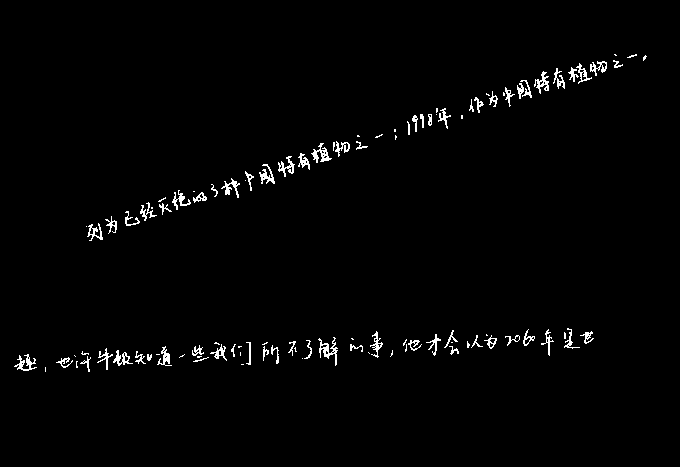 列为已经灭绝的3种中国特有植物之一；1998年，作为中国特有植物之一。
趣，也许牛顿知道一些我们所不了解的事，他才会以为2060年是世